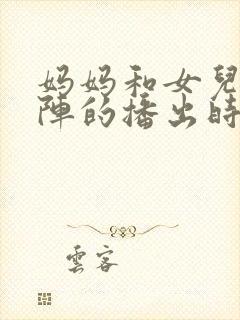 妈妈和女兒
陣的播出時
雲客